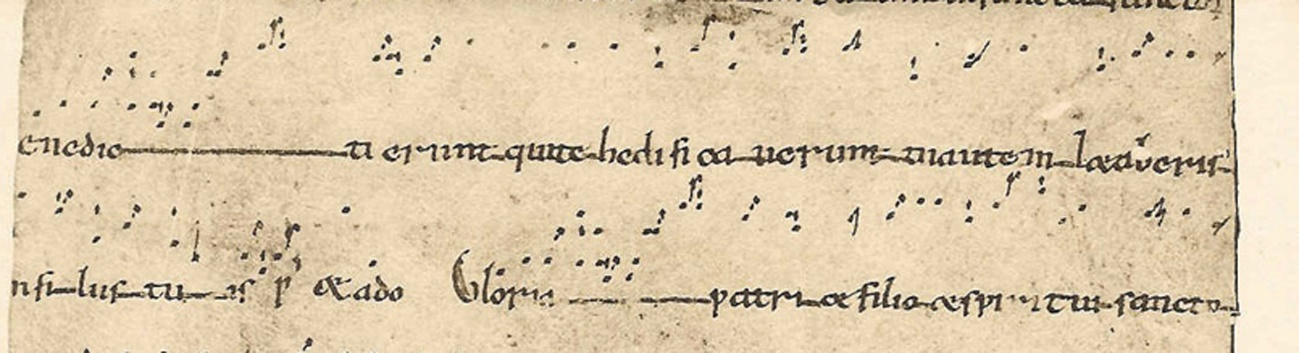 enedic ti erunt qui te hedifica uerunt tu autem lætaveris
in filiis tu is P æt ado Gloria patri æt filio æt spiritui sancto